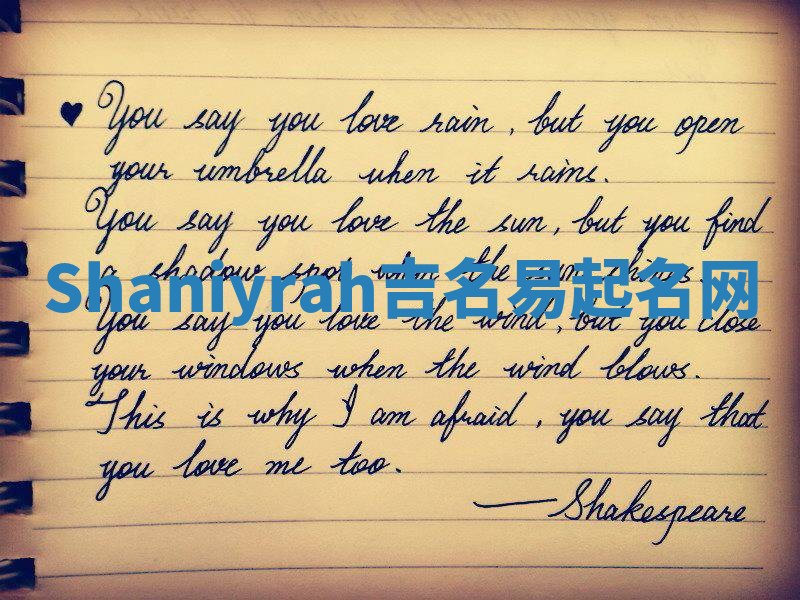 ♥ You say you love rain, but you open
your umbrella when it rains.
You say you love the sun, but you find
a shadow spot when the sun shines.
Shaniyrah吉名易起名网
You say you love the wind, but you close
your windows when the wind blows.
This is why I am afraid, you say that
you love me too.
—Shakespeare